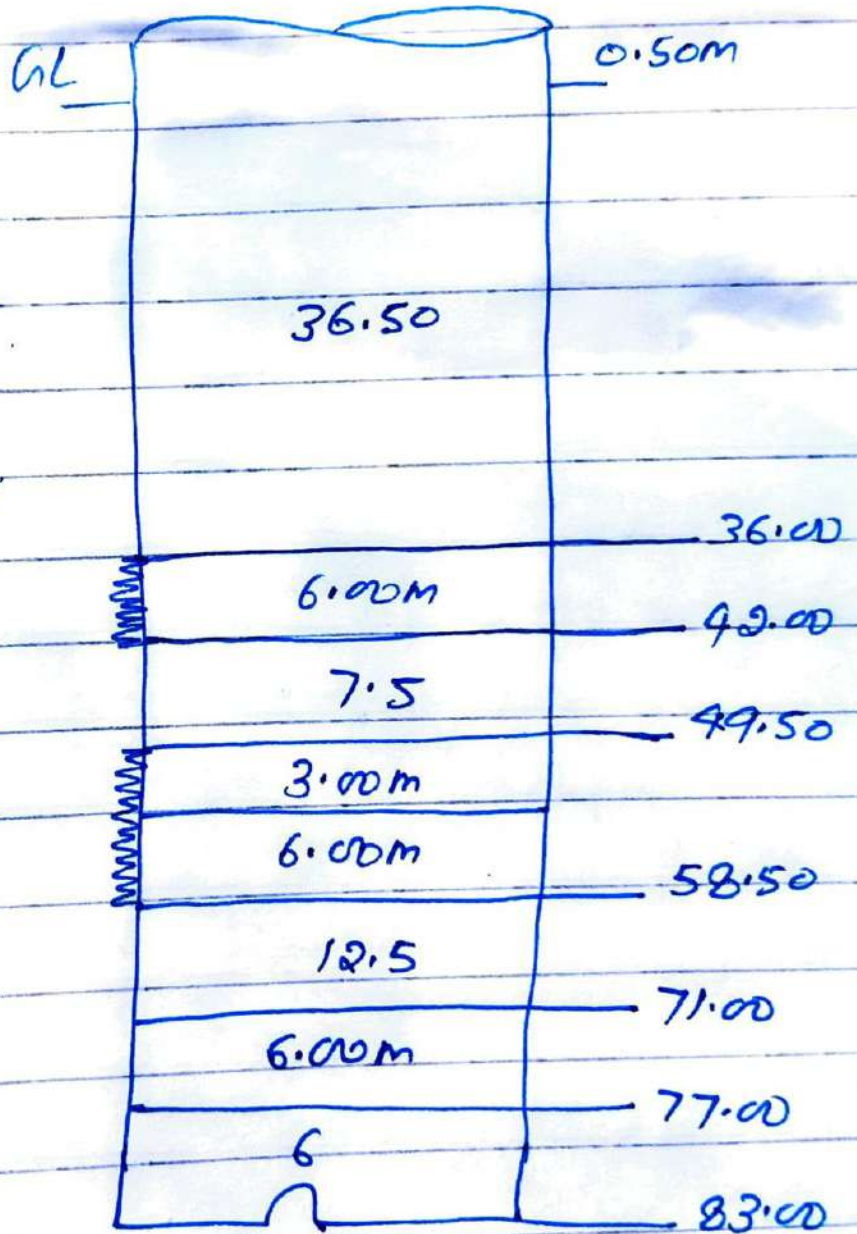 GL
0.50m
36.50
36.00
6.00m
42.00
7.5
49.50
3.00m
6.00m
58.50
12.5
71.00
6.00m
77.00
6
83.00